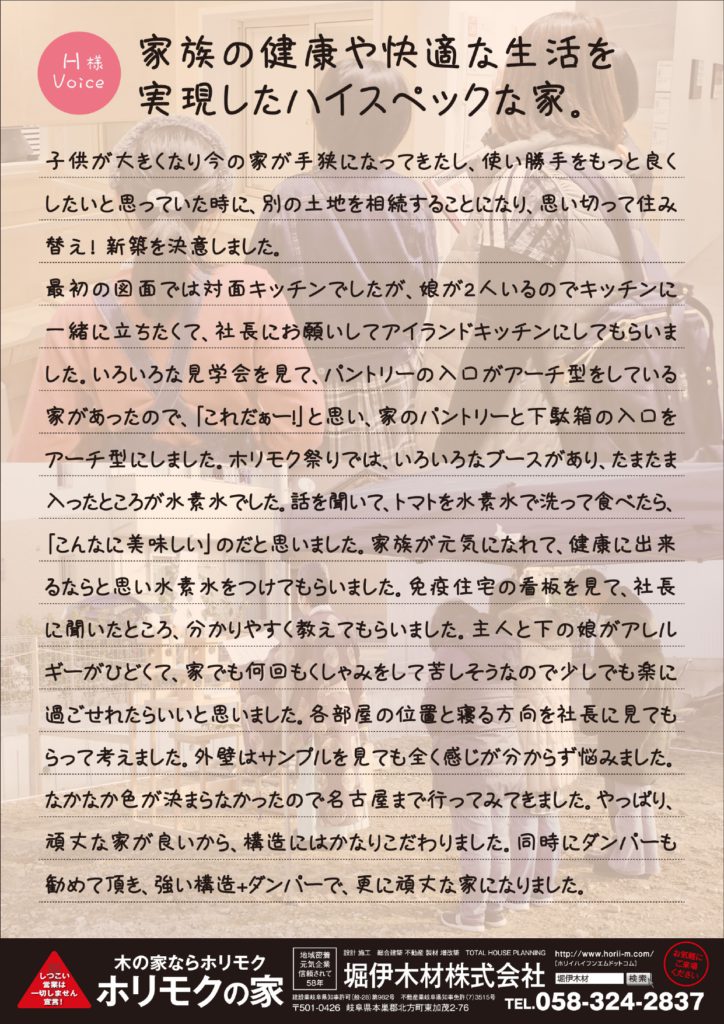 H様
Voice
家族の健康や快適な生活を
実現したハイスペックな家。
子供が大きくなり今の家が手狭になってきたし、使い勝手をもっと良く
したいと思っていた時に、別の土地を相続することになり、思い切って住み
替え！新築を決意しました。
最初の図面では対面キッチンでしたが、娘が2人いるのでキッチンに
一緒に立ちたくて、社長にお願いしてアイランドキッチンにしてもらいま
した。いろいろな見学会を見て、パントリーの入口がアーチ型をしている
家があったので、「これだぁー!」と思い、家のパントリーと下駄箱の入口を
アーチ型にしました。ホリモク祭りでは、いろいろなブースがあり、たまたま
入ったところが水素水でした。話を聞いて、トマトを水素水で洗って食べたら、
「こんなに美味しい」のだと思いました。家族が元気になれて、健康に出来
るならと思い水素水をつけてもらいました。免疫住宅の看板を見て、社長
に聞いたところ、分かりやすく教えてもらいました。主人と下の娘がアレル
ギーがひどくて、家でも何回もくしゃみをして苦しそうなので少しでも楽に
過ごせれたらいいと思いました。各部屋の位置と寝る方向を社長に見ても
らって考えました。外壁はサンプルを見ても全く感じが分からず悩みました。
なかなか色が決まらなかったので名古屋まで行ってみてきました。やっぱり、
頑丈な家が良いから、構造にはかなりこだわりました。同時にダンパーも
勧めて頂き、強い構造+ダンパーで、更に頑丈な家になりました。
しつこい
営業は
一切しません
宣言!
木の家ならホリモク
ホリモクの家
地域密着
元気企業
信頼されて
58年
設計 施工 総合建築 不動産 製材 増改築 TOTAL HOUSE PLANNING
堀伊木材株式会社
建設業岐阜県知事許可(般-28)第982号 不動産業岐阜県知事免許(7)3515号
〒501-0426 岐阜県本巣郡北方町東加茂2-76
http://www.horii-m.com/
[ホリイハイフンエムドットコム]
堀伊木材 検索
TEL.058-324-2837
お気軽に
ご来場
ください